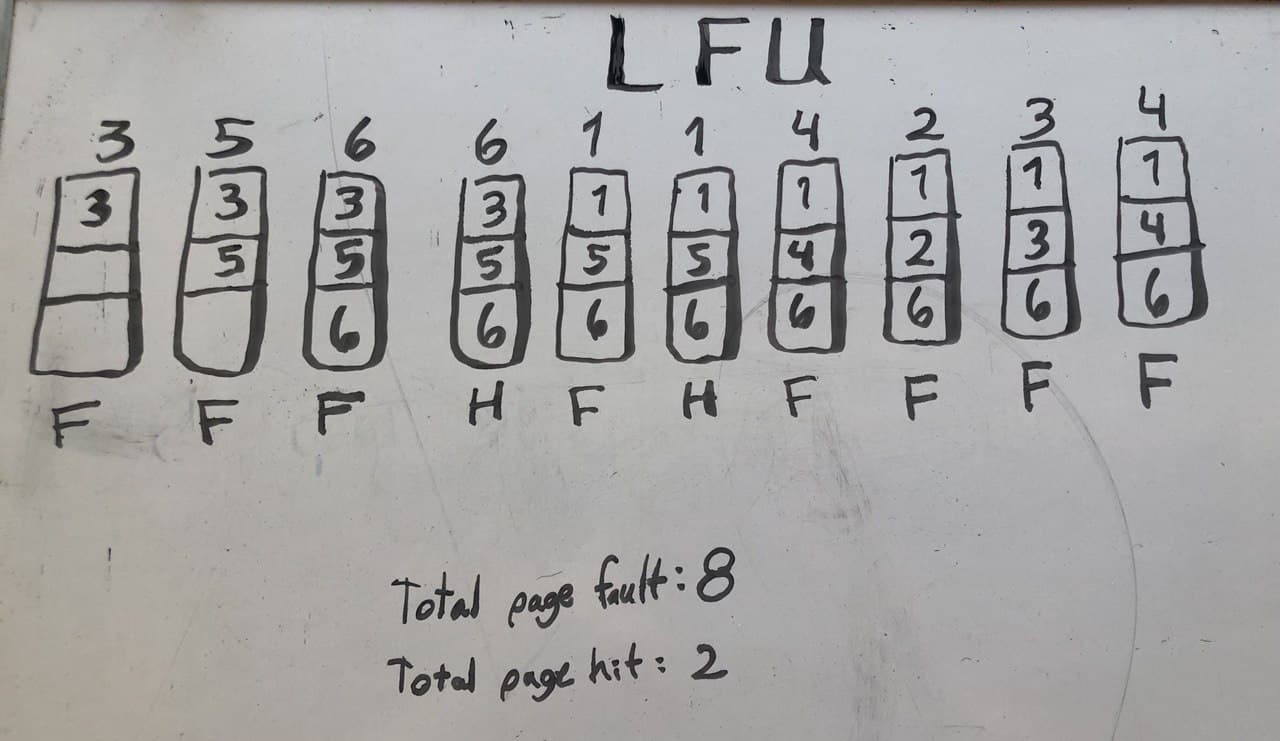 LFU
3 5 6 6 1 1 4 2 3 4
3 3 3 3 1 1 1 1 1 1
5 5 5 5 5 4 2 3 4
6 6 6 6 6 6 6 6
F F F H F H F F F F
Total page fault: 8
Total page hit: 2